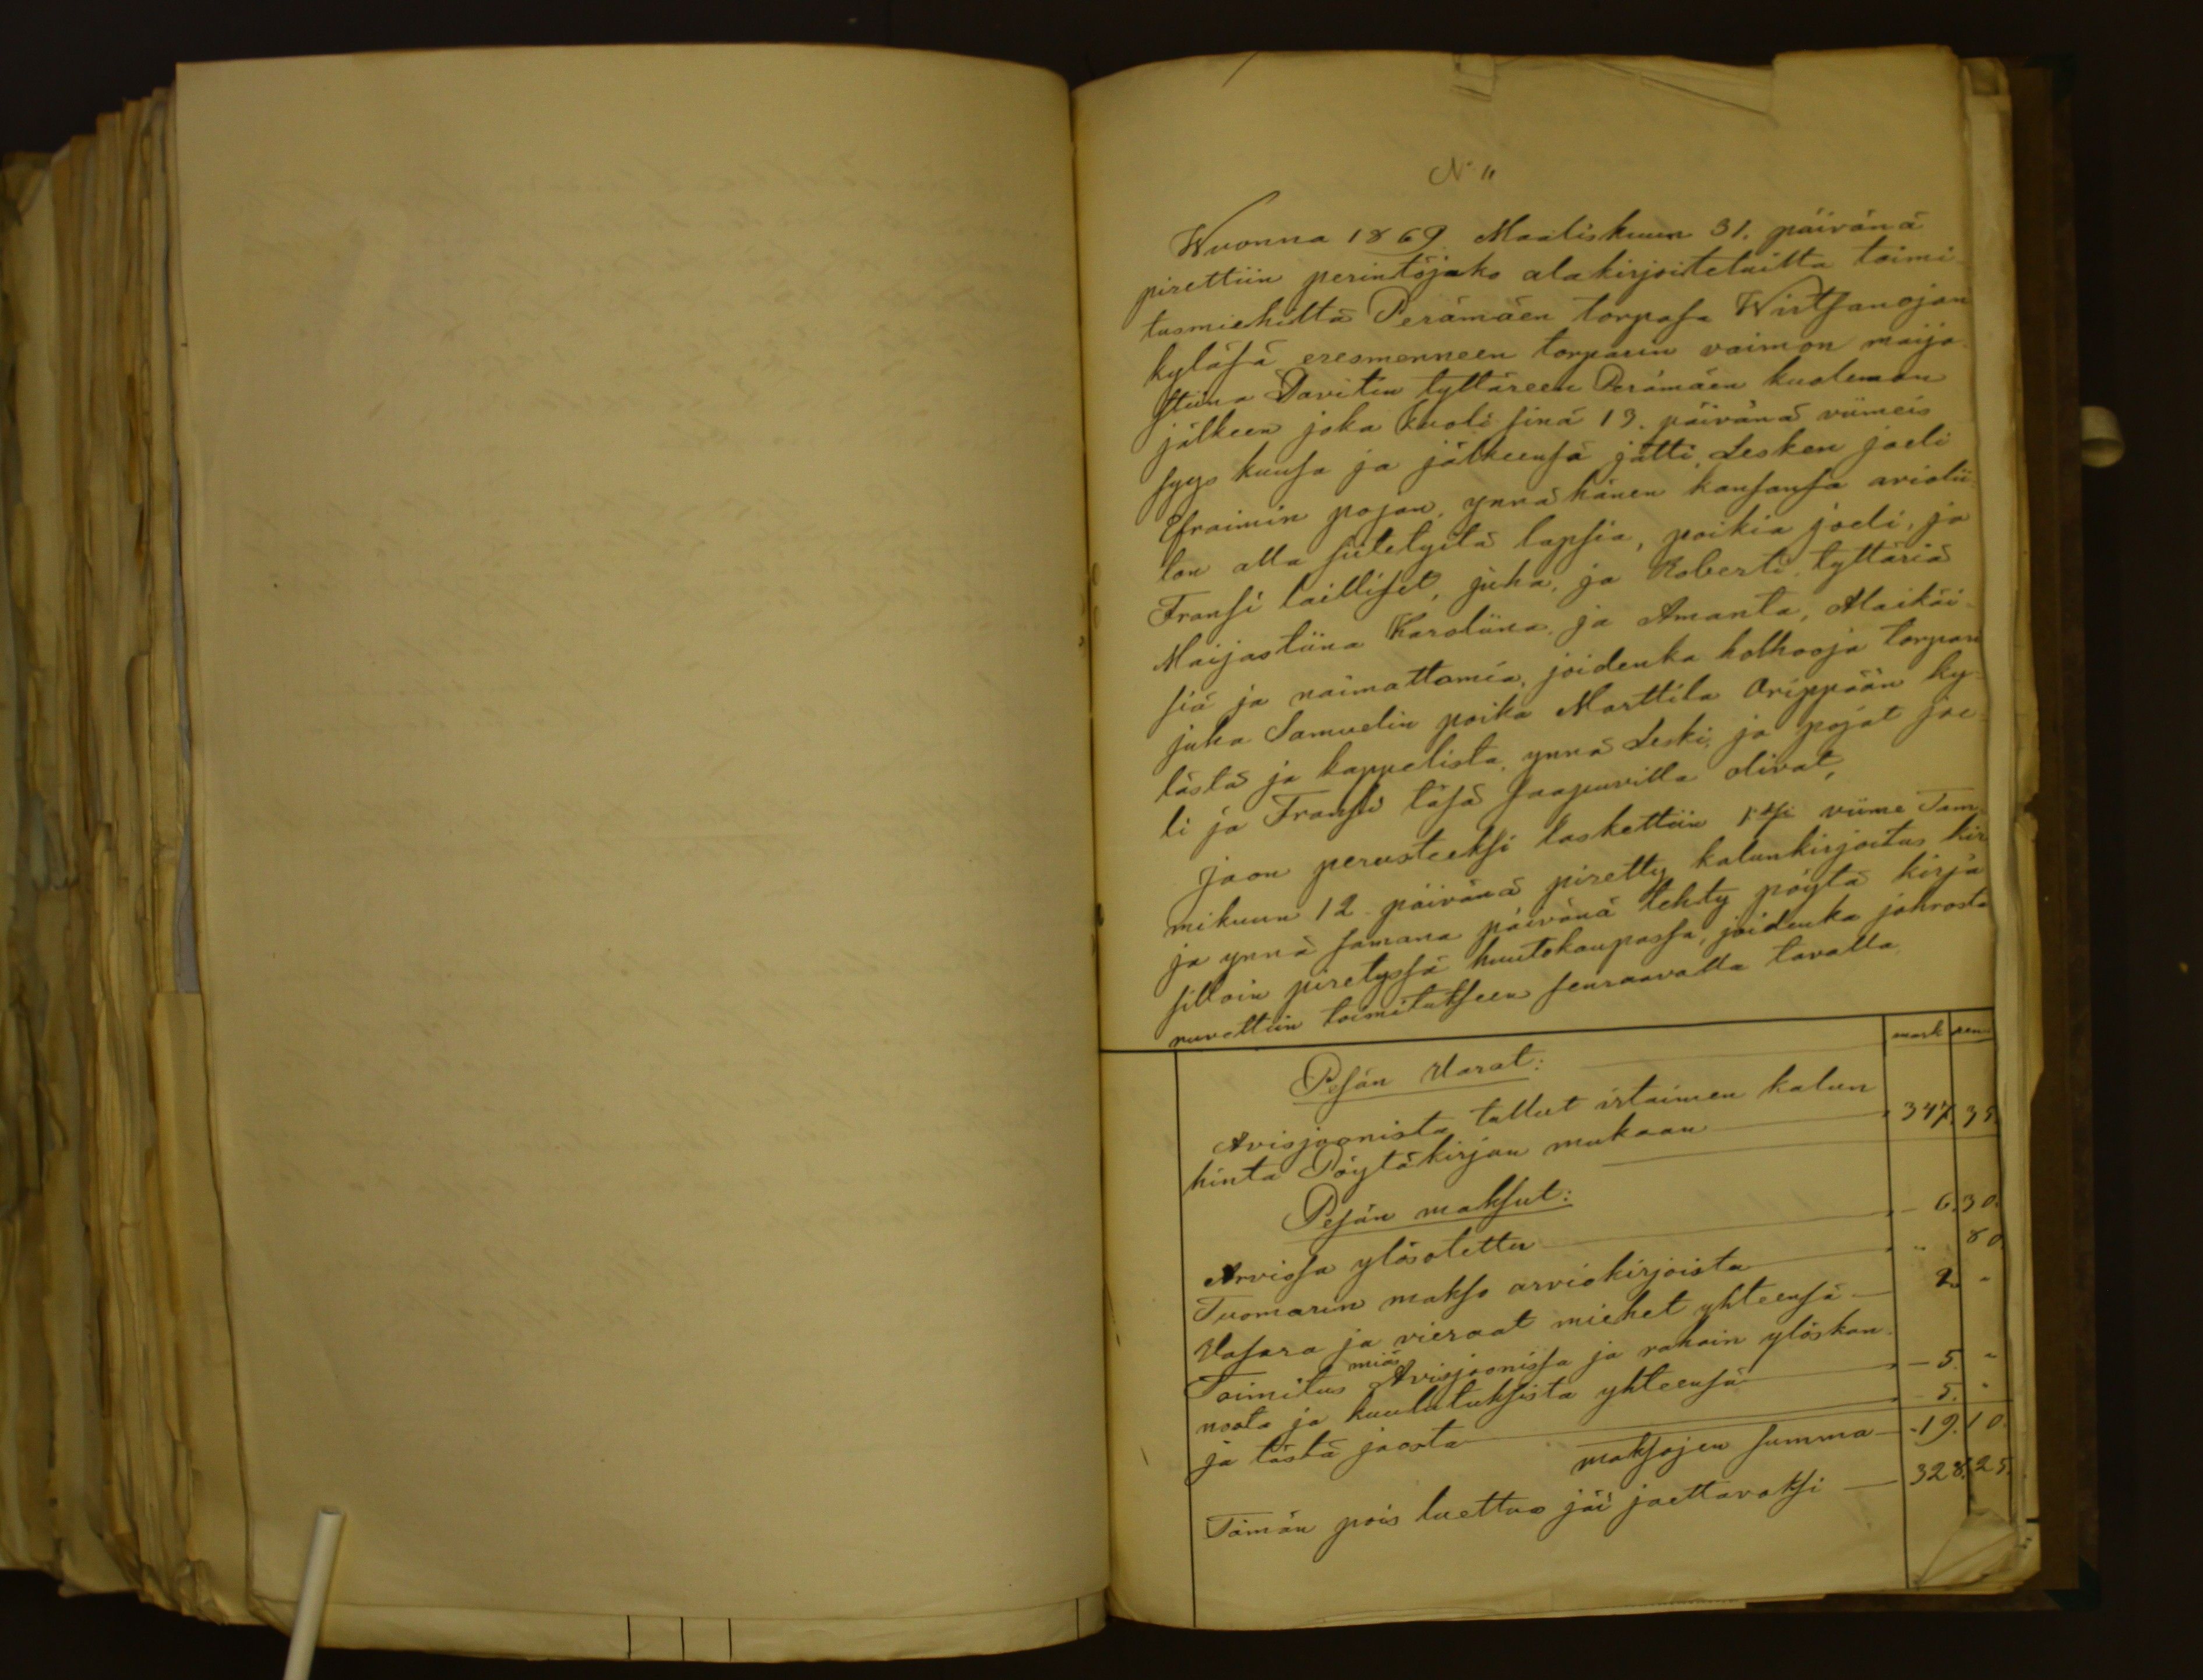 N. 11
Wuonna 1869 Maaliskuun 31. päivänä
pirettiin perintöjako alakirjoitetuilta toimi-
tusmiehiltä Perämäen torpasa Wirtsanojan
kyläsä eresmenneen torparin vaimon maija
stiina Davitin tyttäreen Perämäen kuoleman
jälkeen joka kuoli sinä 13. päivänä viimeis
syys kuusa ja jälkeensä jätti Lesken joeli
Efraimin pojan, ynnä hänen kansansa aviolii-
ton alla siitetyitä lapsia, poikia joeli, ja
Fransi lailliset, juha, ja Roberti, tyttäriä
Maijastiina Karoliina, ja Amanta, Alaikäi-
siä ja naimattomia, joidenka holhooja torpari
juha Samuelin poika Marttila Orippään ky-
lästä ja kappelista, ynnä Leski, ja pojat joe-
li ja Fransi täsä saapuvilla olivat,
Jaon perusteeksi laskettiin viime Tam
mikuun 12 päivänä piretty kalunkirjoitus kir
ja ynnä samana päivänä tehty pöytä kirja
silloin piretyssä huutokaupassa, joidenka johrosta
ruvettiin toimitukseen seuraavalla tavalla.
mark pen
Pesän Varat:
Avisjoonista tullut irtaimen kalun
hinta Pöytäkirjan mukaan 347. 35.
Pesän maksut:
Arviosa ylösotettu 6. 30.
Tuomarin makso arviokirjoista " 80.
Vasara ja vieraat miehet yhteensä 2. "
Toimitus miäs Avisjoonissa ja rahain ylöskan-
nosta ja kuulutuksista yhteensä 5. "
ja tästä jaosta 5. "
maksojen summa 19. 10.
Tämän pois luettua jäi jaettavaksi 328. 25.